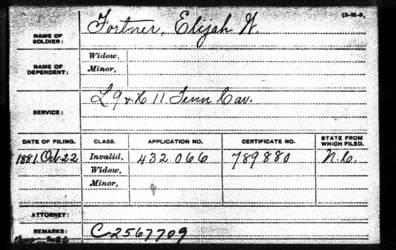 NAME OF SOLDIER: Fortner, Elijah W.
NAME OF DEPENDENT: Widow,
Minor,
SERVICE: L 9 & L 11 Tenn Cav.
DATE OF FILING. CLASS. APPLICATION NO. CERTIFICATE NO. STATE FROM WHICH FILED.
1881 Oct 22 Invalid, 432 066 789880 N.C.
Widow,
Minor,
ATTORNEY:
REMARKS: C2567709